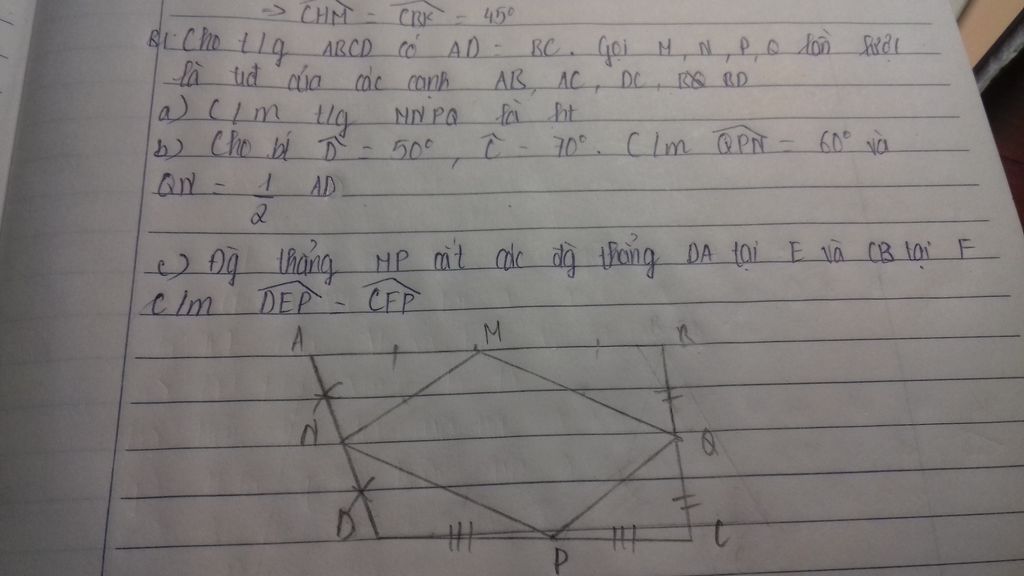 => CHM = CBK = 45°
B1 Cho t/g ABCD có AD = BC. Gọi M, N, P, Q lần lượt
là tđ của các cạnh AB, AC, DC, BD
a) C/m t/g MNPQ là ht
b) Cho bí D = 50°, C = 70°. C/m QPN = 60° và
QN = 1/2 AD
c) Đg thẳng MP cắt các đg thẳng DA tại E và CB tại F
C/m DEP = CFP
A M B
N Q
D P C